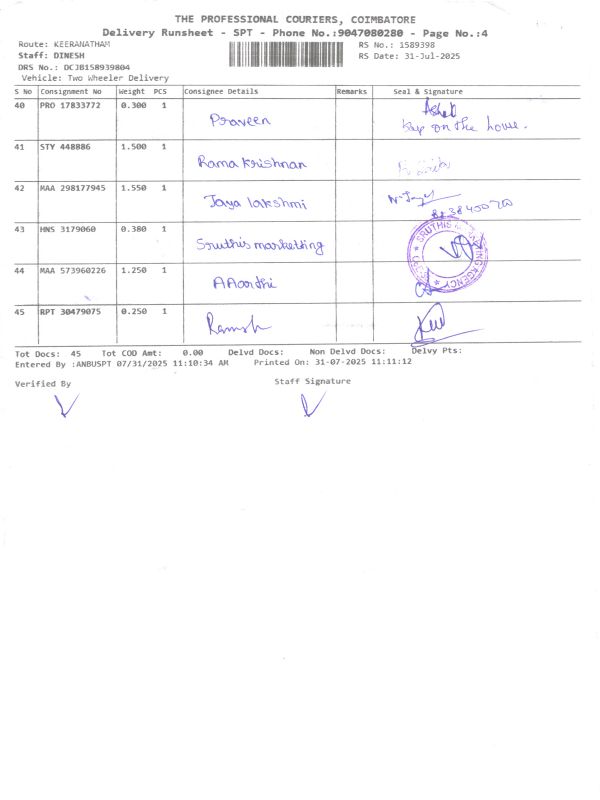 THE PROFESSIONAL COURIERS, COIMBATORE
Delivery Runsheet - SPT - Phone No.:9047080280 - Page No.:4
Route: KEERANATHAM RS No.: 1589398
Staff: DINESH RS Date: 31-Jul-2025
DRS No.: DCJB158939804
Vehicle: Two Wheeler Delivery
S No Consignment No Weight PCS Consignee Details Remarks Seal & Signature
40 PRO 17833772 0.300 1 Praveen
Kep on the house.
41 STY 448886 1.500 1 Rama Krishnan
42 MAA 298177945 1.550 1 Jaya lakshmi
43 HNS 3179060 0.380 1 Sruthi's marketting
44 MAA 573960226 1.250 1 AAarthi
45 RPT 30479075 0.250 1 Ramesh
Tot Docs: 45 Tot COD Amt: 0.00 Delvd Docs: Non Delvd Docs: Delvy Pts:
Entered By :ANBUSPT 07/31/2025 11:10:34 AM Printed On: 31-07-2025 11:11:12
Verified By Staff Signature